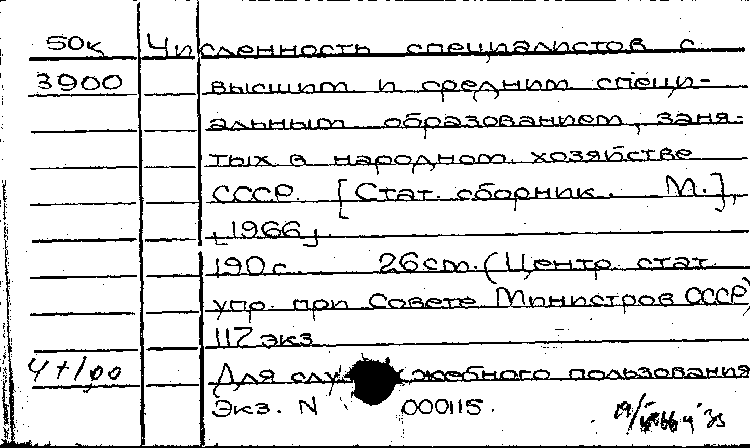 50к Численность специалистов с
3900 высшим и средним специ-
альным образованием, заня-
тых в народном хозяйстве
СССР. [Стат. сборник. М.],
[1966].
190 с. 26 cm. (Центр. стат.
упр. при Совете Министров СССР)
117 экз.
Для служебного пользования
Экз. N 000115.